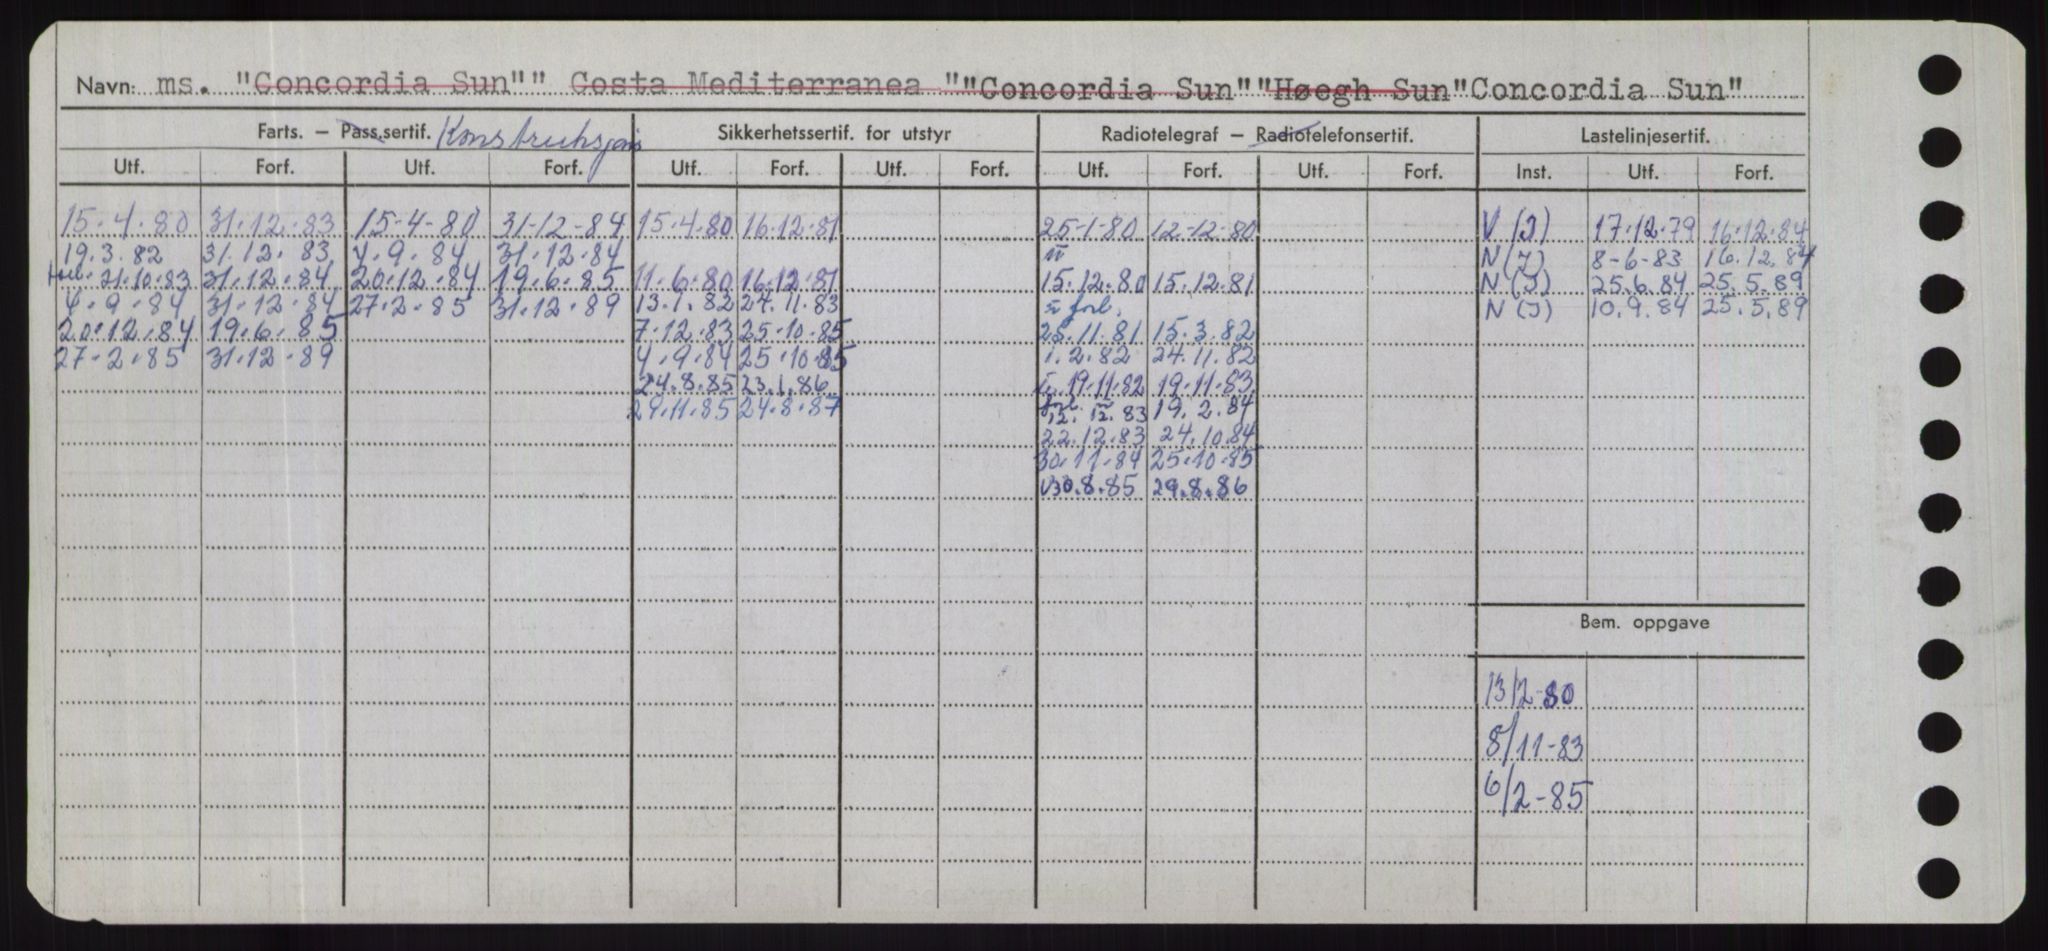 Navn: ms. "Concordia Sun"" Costa Mediterranea ""Concordia Sun""Høegh Sun"Concordia Sun"
Farts. – Pass.sertif. Konstruksjons Sikkerhetssertif. for utstyr Radiotelegraf – Radiotelefonsertif. Lastelinjesertif.
Utf. Forf. Utf. Forf. Utf. Forf. Utf. Forf. Utf. Forf. Utf. Forf. Inst. Utf. Forf.
15-4-80 31.12.83 15-4-80 31-12-84 15.4.80 16.12.81 25-1-80 12-12-80 V (J) 17.12.79 16.12.84
19.3.82 31.12.83 4.9.84 31.12.84 N (J) 8-6-83 16.12.84
21.10.83 31.12.84 20.12.84 19.6.85 11.6.80 16.12.81 15.12.80 15.12.81 N (J) 25.6.84 25.5.89
4.9.84 31.12.84 27.2.85 31.12.89 13.1.82 24.11.83 forl. N (J) 10.9.84 25.5.89
20.12.84 19.6.85 7.12.83 25.10.85 25.11.81 15.3.82
27.2.85 31.12.89 4.9.84 25.10.85 1.2.82 24.11.82
24.8.85 23.1.86 19.11.82 19.11.83
29.11.85 24.8.87 12.12.83 19.2.84
22.12.83 24.10.84
30.11.84 25.10.85
30.8.85 29.8.86
Bem. oppgave
13/2-80
8/11-83
6/2-85